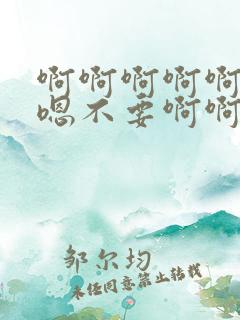 啊啊啊啊啊
嗯不要啊啊
邹尔均
未经同意禁止转载